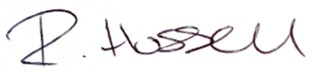 R. Hossell